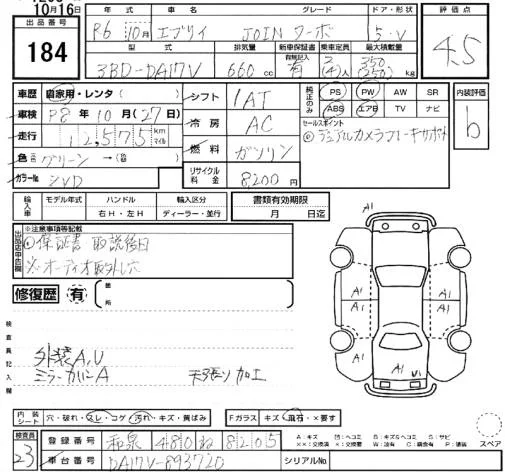 10月16日
出品番号
184
年式 車名 グレード ドア・形状
R6 10月 エブリイ JOINターボ 5・V
型式 排気量 新車保証書 乗車定員 最大積載量
有無記入
3BD-DA17V 660cc 有 2(4)人 350(250)kg
評価点
4.5
車歴 自家用・レンタ( )
車検 R8年10月(27日)
走行 12,575 km マイル
色 グリーン→
カラーNo. SVD
シフト 1AT
冷房 AC
燃料 ガソリン
リサイクル料金 8,200円
純正のみ
PS PW AW SR
ABS エアB TV ナビ
セールスポイント
デュアルカメラブレーキサポート
内装評価
b
輸入車
モデル年式 ハンドル 輸入区分
右H・左H ディーラー・並行
書類有効期限
月 日迄
出品店申告欄
※注意事項等記載
保証書 取説後日
※オーディオ取外し穴
修復歴 有 箇所
検査員記入欄
外装A,U
ミラーカバーA
天張り加工
A1
A1 A1
A1 A1 A1
A1 U1
A1
内装シート
穴・破れ・スレ・コゲ 汚れ・キズ・黄ばみ
Fガラス キズ・飛石・×要す
スペア
検査員
23
登録番号 和泉 480 ね 8205
車台番号 DA17V-893720 シリアルNo.